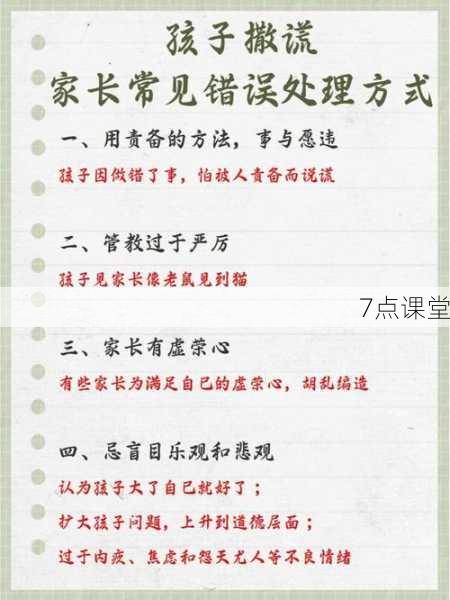 孩子撒谎
家长常见错误处理方式
一、用责备的方法，事与愿违
孩子因做错了事，怕被人责备而说谎
二、管教过于严厉
孩子见家长像老鼠见到猫
7点课堂
三、家长有虚荣心
有些家长为满足自己的虚荣心，胡乱编造
四、忌盲目乐观和悲观
认为孩子大了自己就好了；
扩大孩子问题，上升到道德层面；
过于内疚、焦虑和怨天尤人等不良情绪